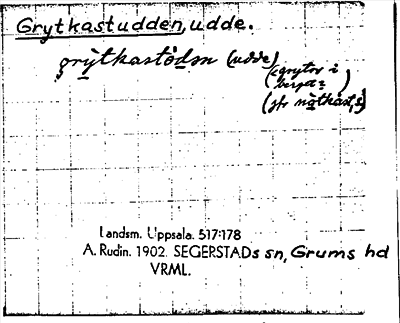 Grytkastudden, udde.
grỳtkastòdən (udde)
(< grytor i
berget?)
(jfr nòtkast,
Landsm. Uppsala. 517:178
A. Rudin. 1902. SEGERSTADs sn, Grums hd
VRML.